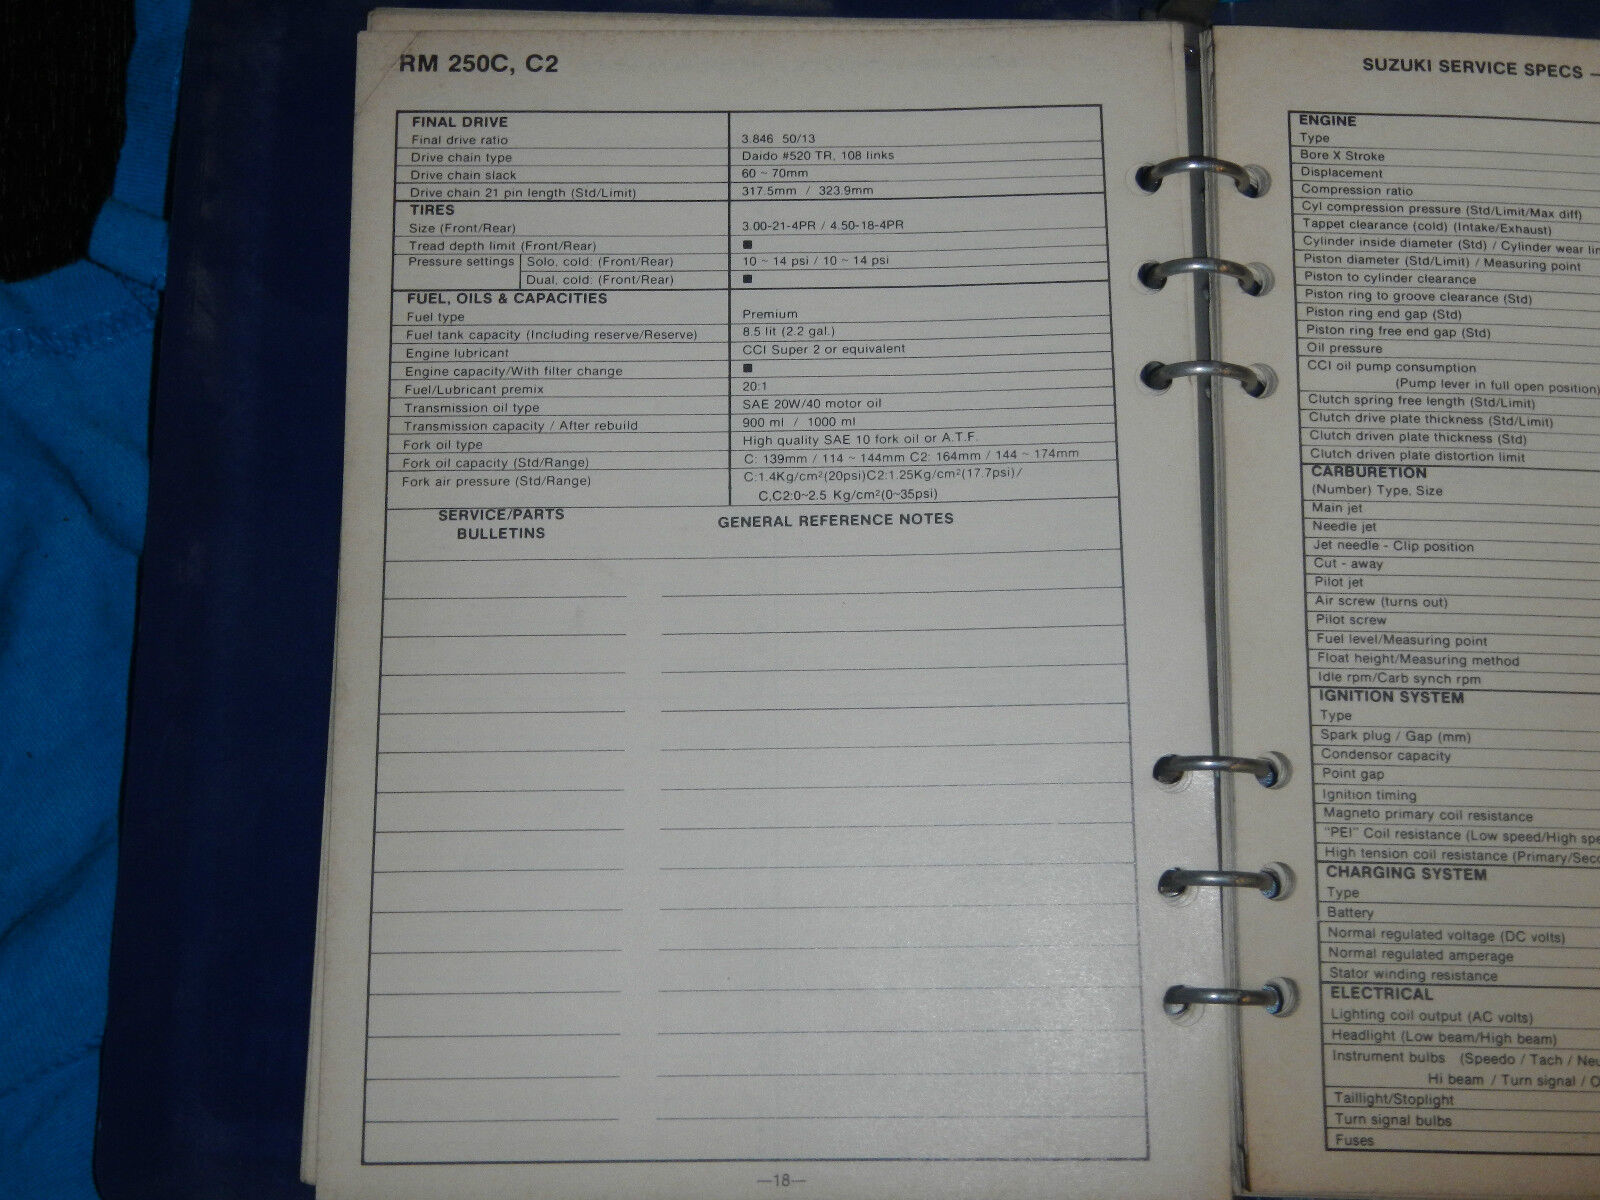 RM 250C, C2
FINAL DRIVE
Final drive ratio 3.846 50/13
Drive chain type Daido #520 TR, 108 links
Drive chain slack 60 ~ 70mm
Drive chain 21 pin length (Std/Limit) 317.5mm / 323.9mm
TIRES
Size (Front/Rear) 3.00-21-4PR / 4.50-18-4PR
Tread depth limit (Front/Rear) ■
Pressure settings Solo, cold: (Front/Rear) 10 ~ 14 psi / 10 ~ 14 psi
Dual, cold: (Front/Rear) ■
FUEL, OILS & CAPACITIES
Fuel type Premium
Fuel tank capacity (Including reserve/Reserve) 8.5 lit (2.2 gal.)
Engine lubricant CCI Super 2 or equivalent
Engine capacity/With filter change ■
Fuel/Lubricant premix 20:1
Transmission oil type SAE 20W/40 motor oil
Transmission capacity / After rebuild 900 ml / 1000 ml
Fork oil type High quality SAE 10 fork oil or A.T.F.
Fork oil capacity (Std/Range) C: 139mm / 114 ~ 144mm C2: 164mm / 144 ~ 174mm
Fork air pressure (Std/Range) C:1.4Kg/cm²(20psi)C2:1.25Kg/cm²(17.7psi)/
C,C2:0~2.5 Kg/cm²(0~35psi)
SERVICE/PARTS
BULLETINS
GENERAL REFERENCE NOTES
—18—
SUZUKI SERVICE SPECS —
ENGINE
Type
Bore X Stroke
Displacement
Compression ratio
Cyl compression pressure (Std/Limit/Max diff)
Tappet clearance (cold) (Intake/Exhaust)
Cylinder inside diameter (Std) / Cylinder wear
Piston diameter (Std/Limit) / Measuring point
Piston to cylinder clearance
Piston ring to groove clearance (Std)
Piston ring end gap (Std)
Piston ring free end gap (Std)
Oil pressure
CCI oil pump consumption
(Pump lever in full open position)
Clutch spring free length (Std/Limit)
Clutch drive plate thickness (Std/Limit)
Clutch driven plate thickness (Std)
Clutch driven plate distortion limit
CARBURETION
(Number) Type, Size
Main jet
Needle jet
Jet needle - Clip position
Cut - away
Pilot jet
Air screw (turns out)
Pilot screw
Fuel level/Measuring point
Float height/Measuring method
Idle rpm/Carb synch rpm
IGNITION SYSTEM
Type
Spark plug / Gap (mm)
Condensor capacity
Point gap
Ignition timing
Magneto primary coil resistance
"PEI" Coil resistance (Low speed/High
High tension coil resistance (Primary/
CHARGING SYSTEM
Type
Battery
Normal regulated voltage (DC volts)
Normal regulated amperage
Stator winding resistance
ELECTRICAL
Lighting coil output (AC volts)
Headlight (Low beam/High beam)
Instrument bulbs (Speedo / Tach /
Hi beam / Turn signal /
Taillight/Stoplight
Turn signal bulbs
Fuses